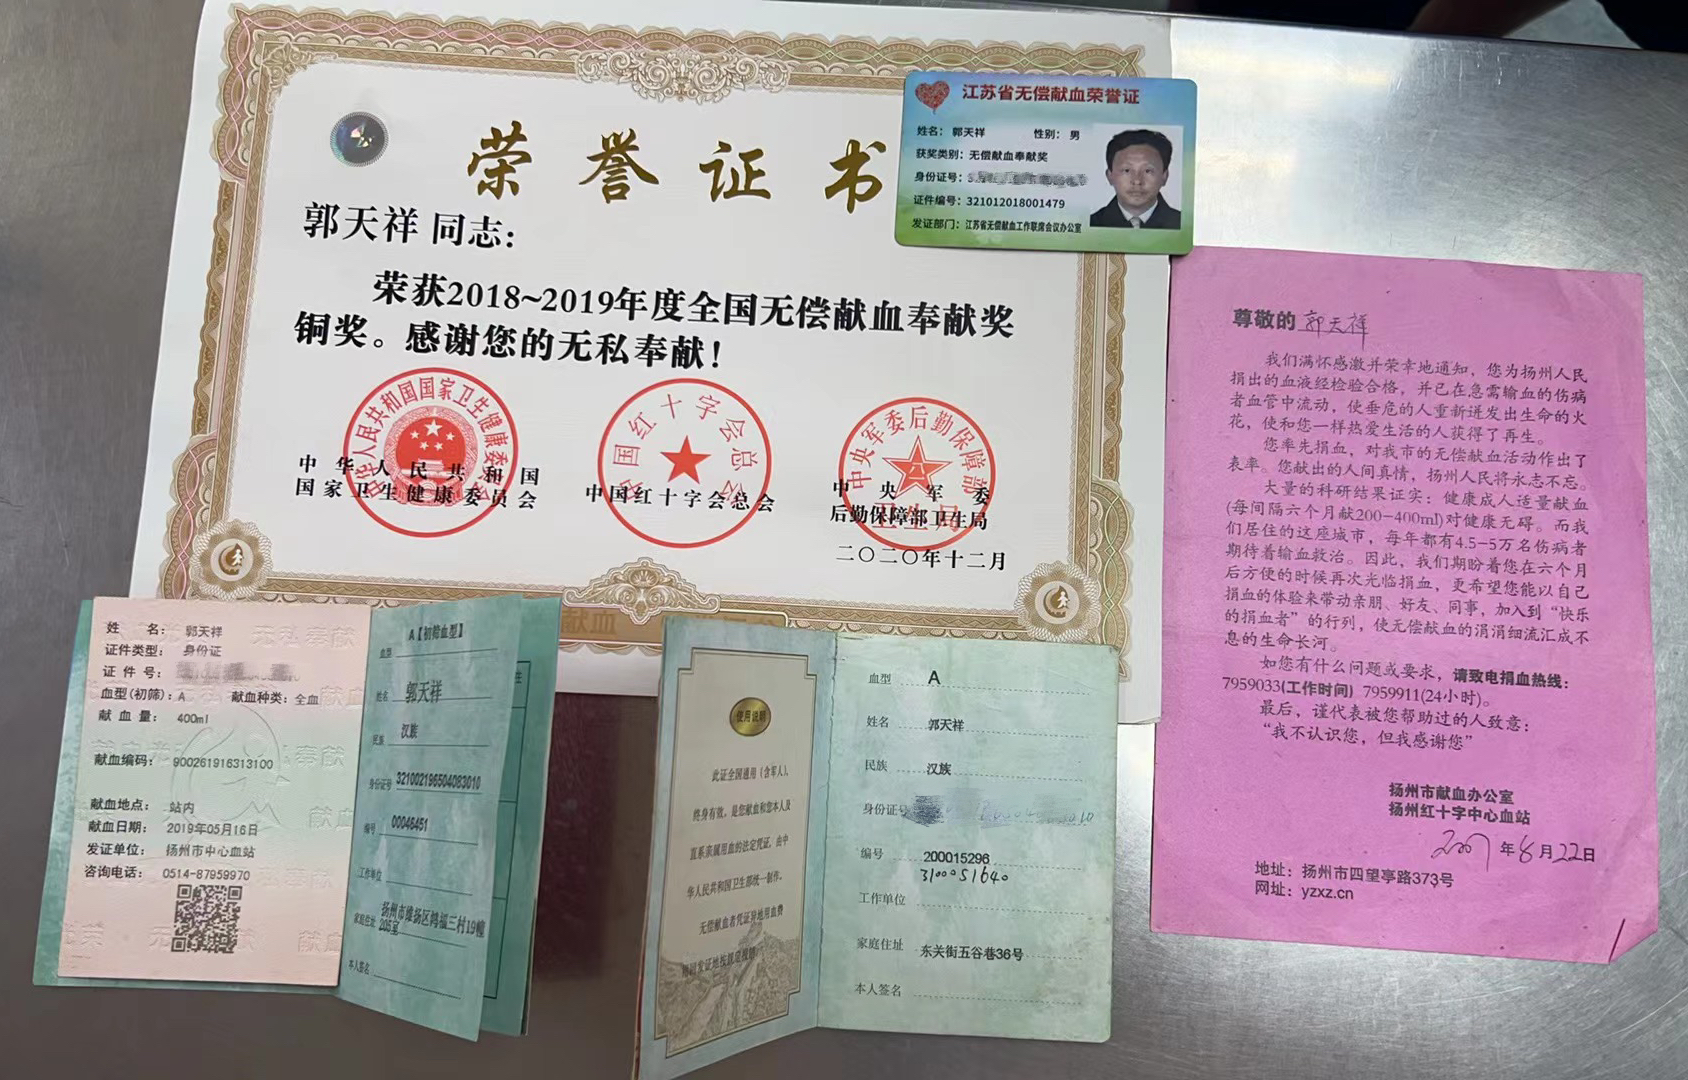 荣誉证书
郭天祥 同志：
荣获2018~2019年度全国无偿献血奉献奖
铜奖。感谢您的无私奉献！
中华人民共和国国家卫生健康委员会
中国红十字会总会
中央军委后勤保障部
卫生局
中华人民共和国
国家卫生健康委员会
中国红十字会总会
中央军委
后勤保障部卫生局
二〇二〇年十二月
江苏省无偿献血荣誉证
姓名：郭天祥 性别：男
获奖类别：无偿献血奉献奖
身份证号：
证件编号：321012018001479
发证部门：江苏省无偿献血工作联席会议办公室
尊敬的 郭天祥
我们满怀感激并荣幸地通知，您为扬州人民
捐出的血液经检验合格，并已在急需输血的伤病
者血管中流动，使垂危的人重新迸发出生命的火
花，使和您一样热爱生活的人获得了再生。
您率先捐血，对我市的无偿献血活动作出了
表率。您献出的人间真情，扬州人民将永志不忘。
大量的科研结果证实：健康成人适量献血
(每间隔六个月献200-400ml)对健康无碍。而我
们居住的这座城市，每年都有4.5-5万名伤病者
期待着输血救治。因此，我们期盼着您在六个月
后方便的时候再次光临捐血，更希望您能以自己
捐血的体验来带动亲朋、好友、同事，加入到“快乐
的捐血者”的行列，使无偿献血的涓涓细流汇成不
息的生命长河。
如您有什么问题或要求，请致电捐血热线：
7959033(工作时间) 7959911(24小时)。
最后，谨代表被您帮助过的人致意：
“我不认识您，但我感谢您”
扬州市献血办公室
扬州红十字中心血站
2007年8月22日
地址：扬州市四望亭路373号
网址：yzxz.cn
姓 名：郭天祥
证件类型：身份证
证 件 号：
血型(初筛)：A 献血种类：全血
献 血 量：400ml
献血编码：900261916313100
献血地点：站内
献血日期：2019年05月16日
发证单位：扬州市中心血站
咨询电话：0514-87959970
血型 A【初筛血型】
姓名 郭天祥
民族 汉族
身份证号 321002196504083010
编号 00046451
工作单位
家庭住址 扬州市维扬区鹤福三村19幢
205室
本人签名
使用说明
此证全国通用（含军人），
终身有效，是您献血和您本人及
直系亲属用血的法定凭证，由中
华人民共和国卫生部统一制作。
无偿献血者凭证异地用血费
血型 A
姓名 郭天祥
民族 汉族
身份证号
编号 200015296
3100051640
工作单位
家庭住址 东关街五谷巷36号
本人签名